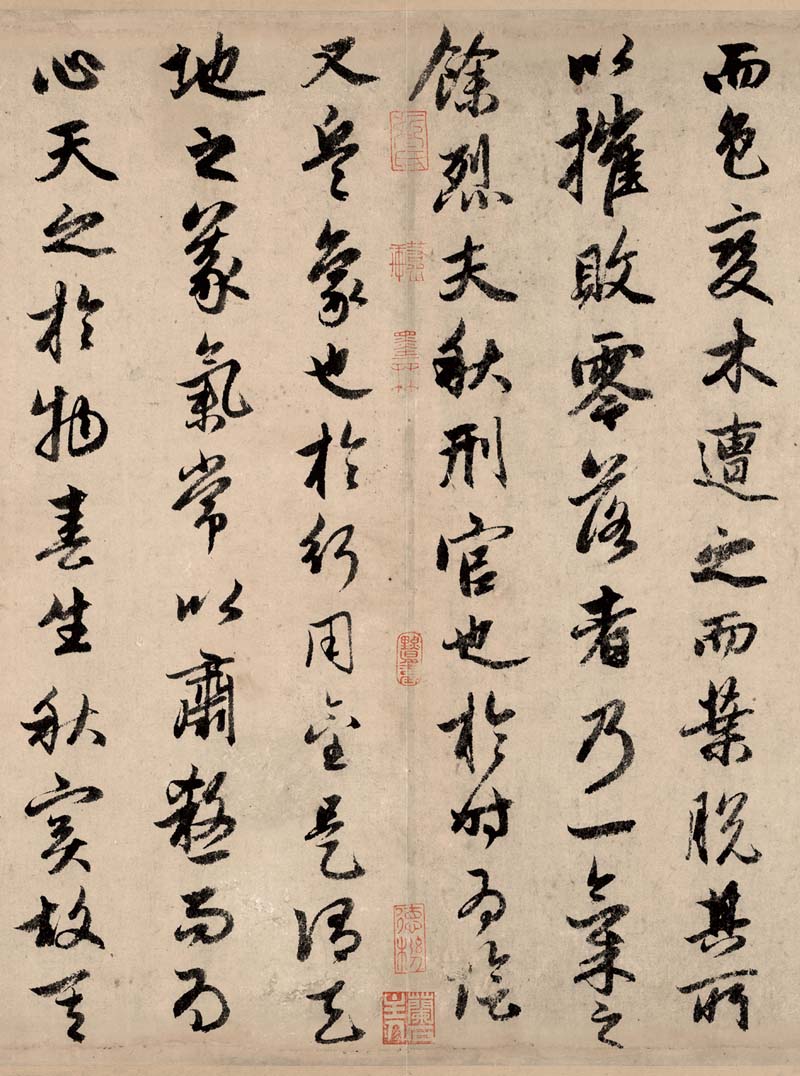 而色變木遭之而葉脫其所
以摧敗零落者乃一氣之
餘烈夫秋刑官也於時為陰
又兵象也於行用金是謂天
地之義氣常以肅殺而為
心天之於物春生秋實故其